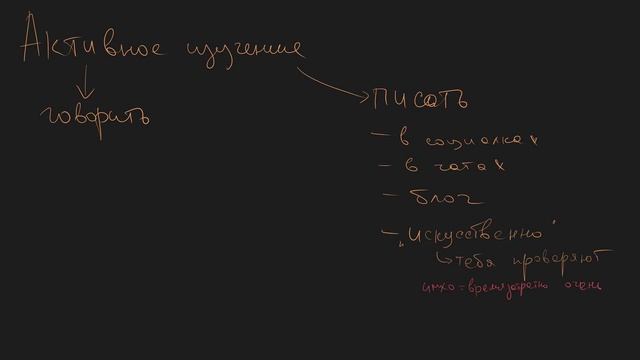 Активное изучение
говорить
писать
- в социалках
- в чатах
- блог
- "искусственно"
тебя проверяют
имхо = времязатратно очень